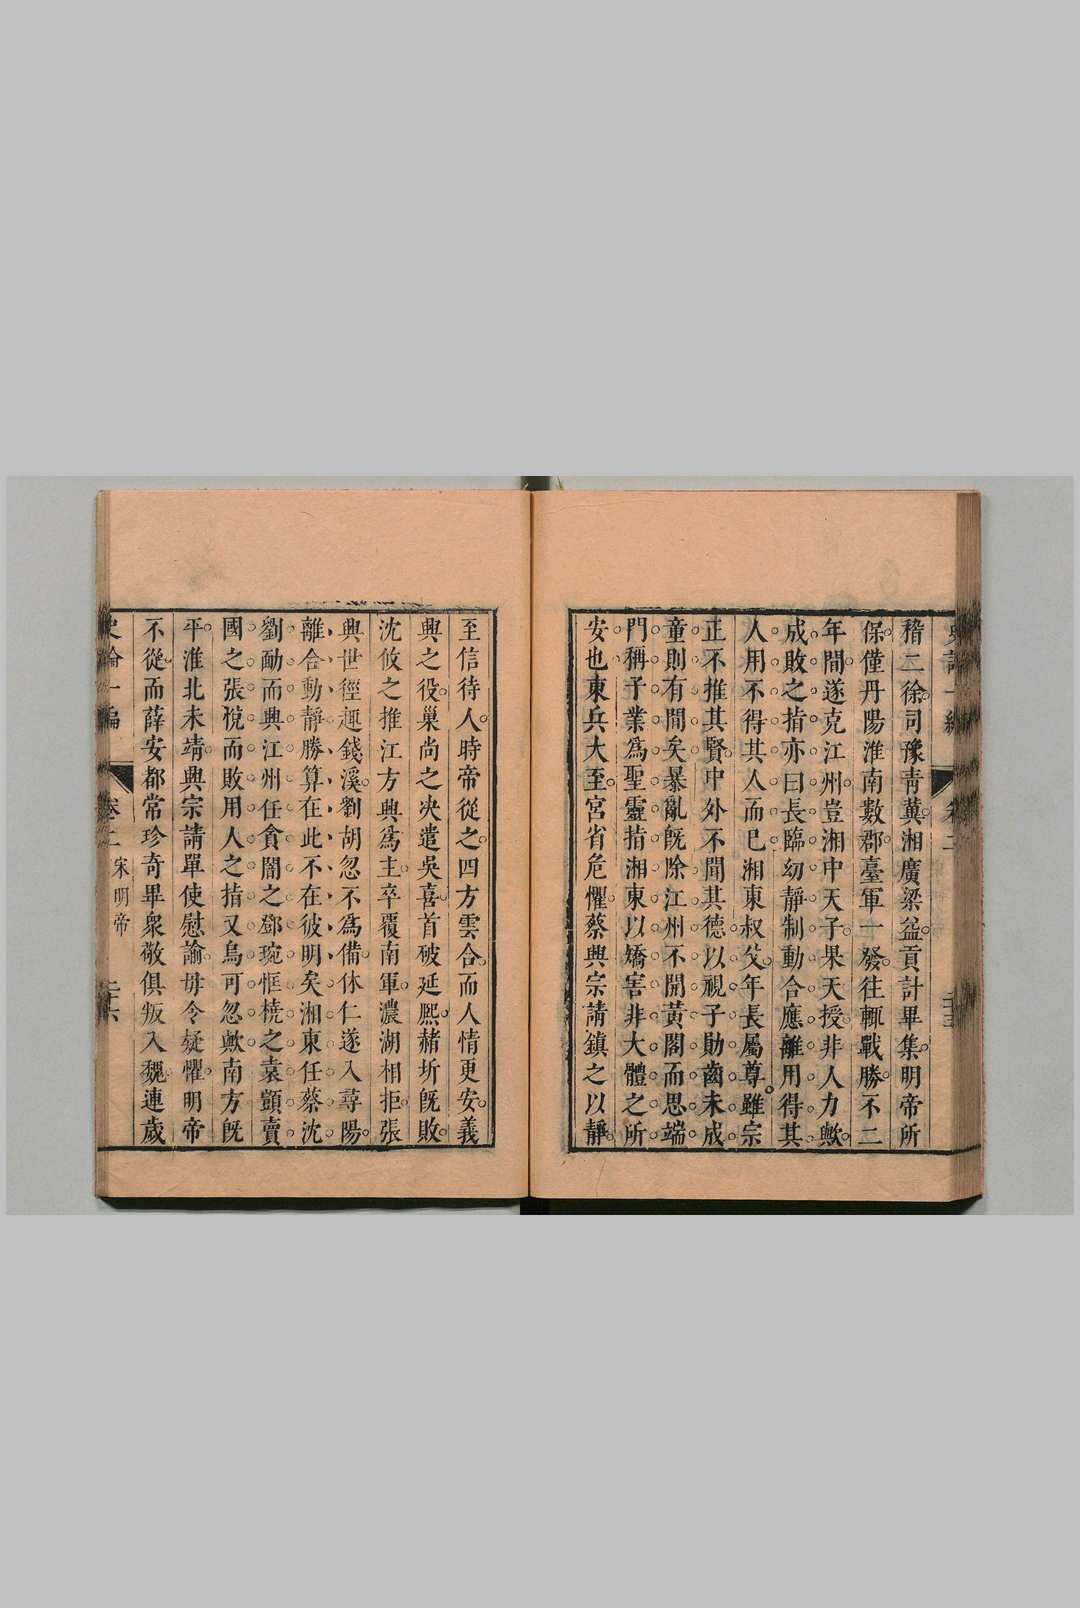 稽二徐司豫青冀湘廣梁益貢計畢集明帝所
保僅丹陽淮南數郡臺軍一發往輒戰勝不二
年間遂克江州豈湘中天子果天授非人力歟
成敗之指亦曰長臨幼靜制動合應離用得其
人用不得其人而已湘東叔父年長屬尊雖宗
正不推其賢中外不聞其德以視子勛齒未成
童則有間矣暴亂旣除江州不開黃閣而思端
門稱子業爲聖靈指湘東以矯害非大體之所
安也東兵大至宮省危懼蔡興宗請鎮之以靜
至信待人時帝從之四方雲合而人情更安義
興之役巢尚之决遣吳喜首破延熙赭圻旣敗
沈攸之推江方興爲主卒覆南軍濃湖相拒張
興世徑趣錢溪劉胡忽不爲備休仁遂入尋陽
離合動靜勝算在此不在彼明矣湘東任蔡沈
劉勔而興江州任貪闇之鄧琬恇橈之袁顗賣
國之張恱而敗用人之指又烏可忽歟南方旣
平淮北未靖興宗請單使慰諭毋令疑懼明帝
不從而薛安都常珍奇畢衆敬俱叛入魏連歲
史論一編
卷二
宋明帝
二十六